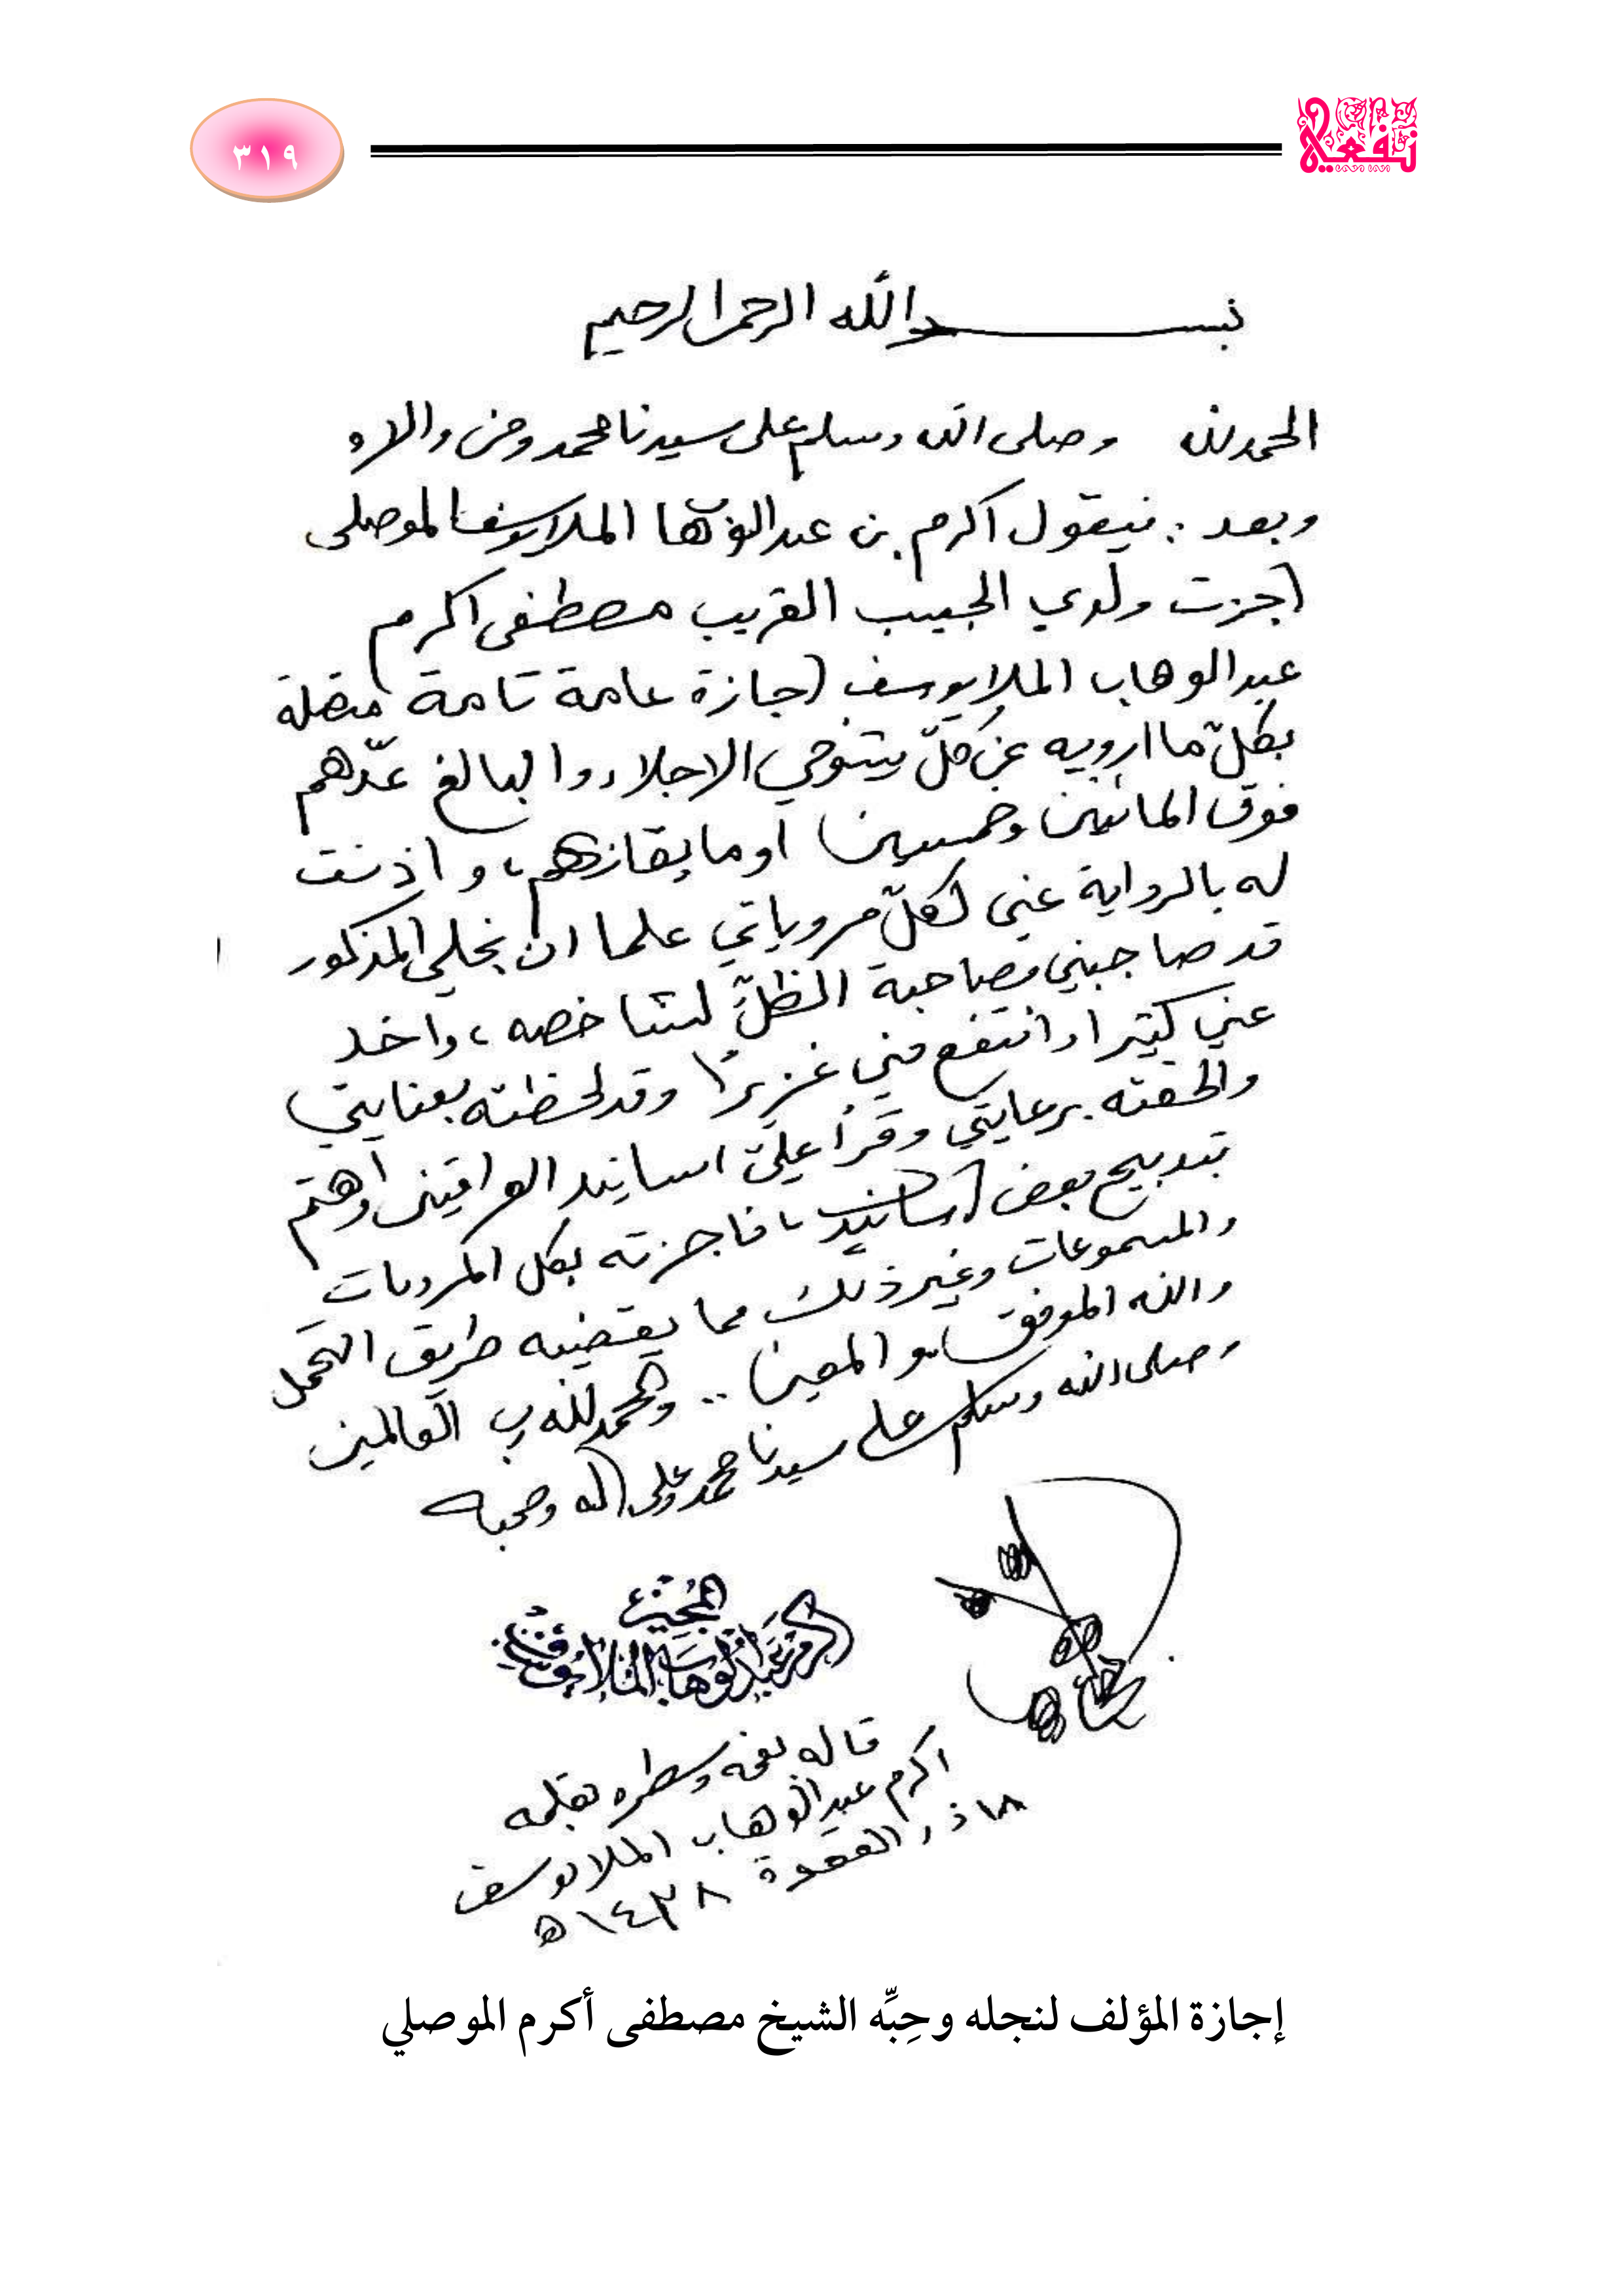 ٣١٩
بسم الله الرحمن الرحيم
الحمد لله وصلى الله وسلم على سيدنا محمد ومن والاه
وبعد : فيقول اكرم بن عبدالوهاب الملايوسف الموصلي
اجزت ولدي الحبيب القريب مصطفى اكرم
عبدالوهاب الملايوسف اجازة عامة تامة متصلة
بكلّ ما ارويه عن كلّ شيوخي الاجلاء والبالغ عدّهم
فوق المائتين وخمسين او ما يقاربهم، و اذنت
له بالرواية عني لكلّ مروياتي علما ان نجلي المذكور
قد صاحبني مصاحبة الظلّ لشاخصه، واخذ
عني كثيرا وانتفع مني غزيرًا وقد لحظته بعنايتي
والحقته برعايتي وقرأ عليّ اسانيد العراقيين واهتم
بتدبيج بعض اسانيد، فاجزته بكل المرويات
والمسموعات وغير ذلك مما يقتضيه طريق التحمل
والله الموفق و المعين .. والحمد لله رب العالمين
وصلى الله وسلم على سيدنا محمد وعلى اله وصحبه
المجيز
اكرم عبدالوهاب الملايوسف
قاله بفمه وسطره بقلمه
اكرم عبدالوهاب الملايوسف
١٨ ذو القعدة ١٤٣٨ ه
إجازة المؤلف لنجله وحِبِّه الشيخ مصطفى أكرم الموصلي